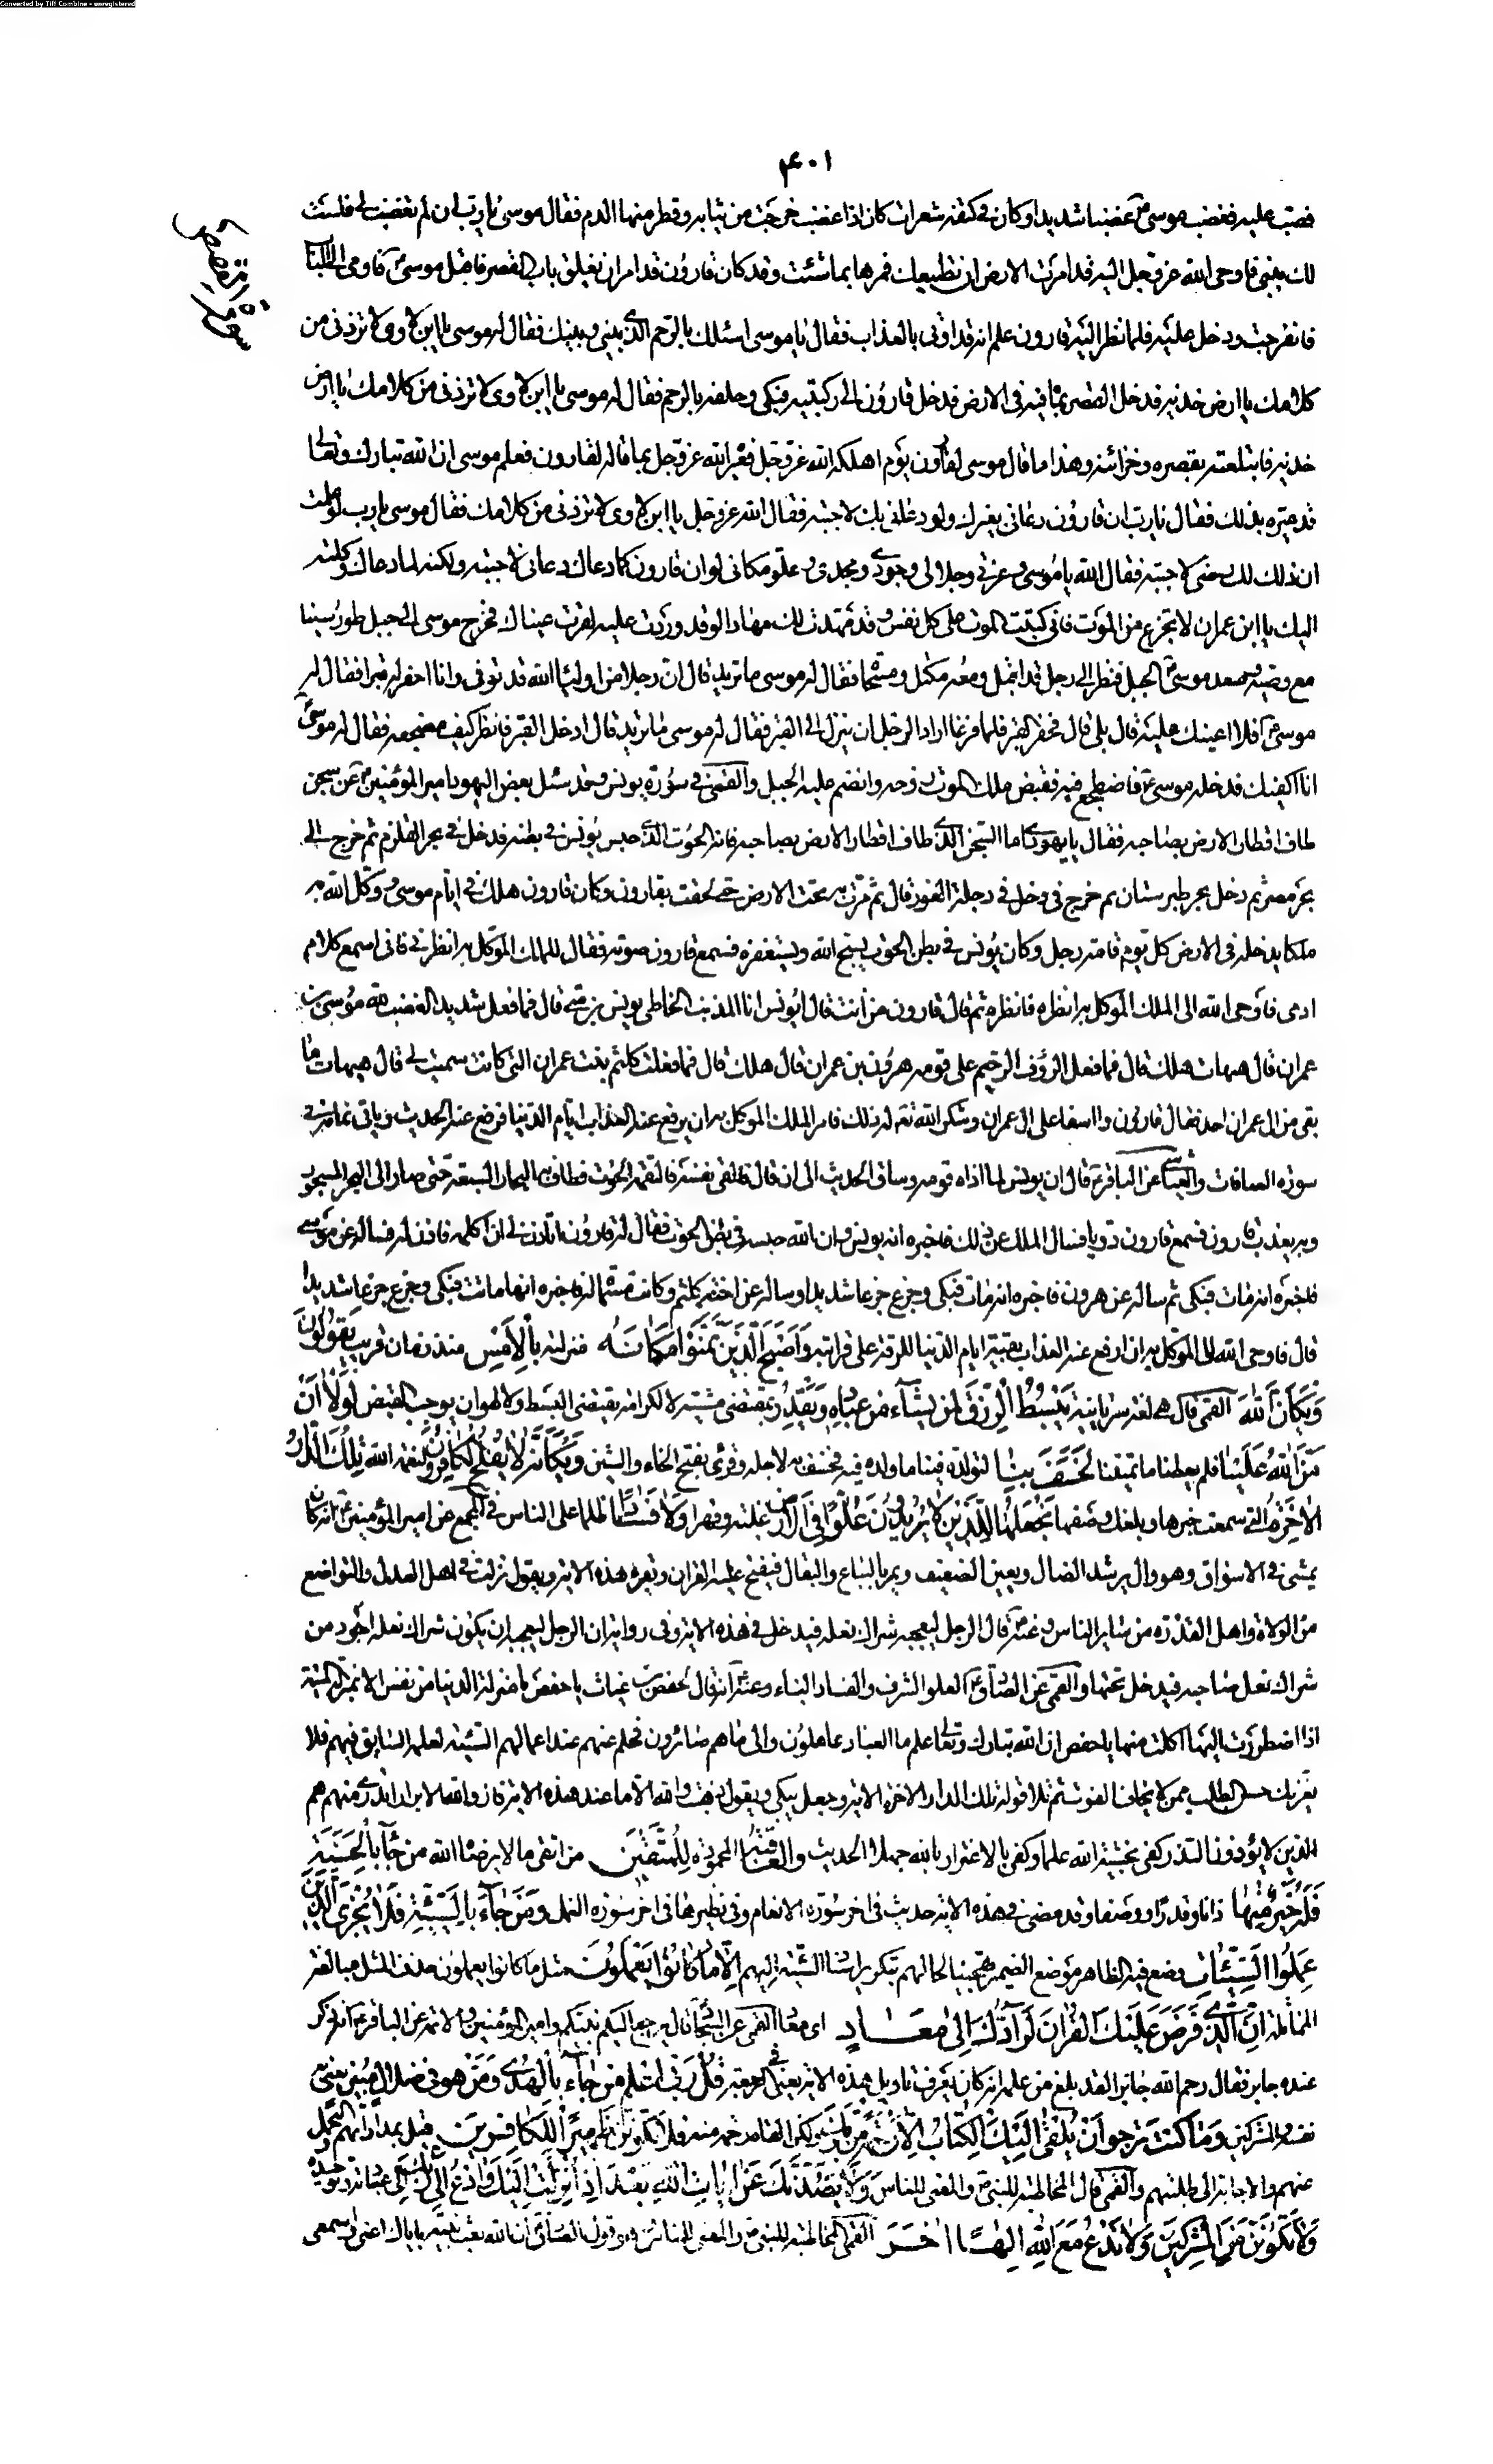 Converted by Tiff Combine - unregistered
۴۰۱
سورة القصص
فصبّ عليه فغضب موسى ع غضبا شديدا وكان فى كتفه شعرات كان اذا غضب خرجت من ثيابه وقطر منها الدم فقال موسى يا ربّ ان لم تغضب لى فلست
لك بنبىّ فاوحى الله عزّ وجل اليه قد امرت الارض ان تطيعك فمرها بما شئت وقد كان قارون قد امر ان يغلق باب القصر فاقبل موسى ع فاومى الى الباب
فانفرجت ودخل عليه فلما نظر اليه قارون علم انه قد اوتى بالعذاب فقال يا موسى اسئلك بالرّحم الذى بينى وبينك فقال له موسى يا ابن لاوى لا تزدنى من
كلامك يا ارض خذيه فدخل القصر بما فيه فى الارض فدخل قارون الى ركبتيه فبكى وحلفه بالرحم فقال له موسى يا ابن لاوى لا تزدنى من كلامك يا ارض
خذيه فابتلعته بقصره وخزائنه وهذا ما قال موسى لقارون يوم اهلكه الله عزّ وجل فعيّره الله عزّ وجل بما قاله لقارون فعلم موسى ان الله تبارك وتعالى
قد عيّره بذلك فقال يا ربّ ان قارون دعانى بغيرك ولو دعانى بك لاجبته فقال الله عزّ وجل يا ابن لاوى لا تزدنى من كلامك فقال موسى يا ربّ لو علمت
ان ذلك لك رضى لاجبته فقال الله يا موسى وعزتى وجلالى وجودى ومجدى وعلوّ مكانى لو ان قارون كما دعاك دعانى لاجبته ولكنه لما دعاك وكلته
اليك يا ابن عمران لا تجزع من الموت فانى كتبت الموت على كل نفس وقد مهّدت لك مهادا لو قد وردت عليه لقرّت عيناك فخرج موسى الى جبل طور سينا
مع وصيّه وصعد موسى ع الجبل فنظر الى رجل قد اقبل ومعه مكتل ومسحاة فقال له موسى ما تريد قال ان رجلا من اولياء الله قد توفى وانا احفر له قبرا فقال له
موسى ع افلا اعينك عليه قال بلى قال فحفرا القبر فلما فرغا اراد الرجل ان ينزل الى القبر فقال له موسى ما تريد قال ادخل القبر فانظر كيف مضجعه فقال له موسى ع
انا اكفيك فدخله موسى ع فاضطجع فيه فقبض ملك الموت روحه وانضم عليه الجبل والقمى فى سورة يونس وقد سئل بعض اليهود امير المؤمنين ع عن سجن
طاف اقطار الارض بصاحبه فقال يا يهودى اما السّجن الذى طاف اقطار الارض بصاحبه فانه الحوت الذى حبس يونس فى بطنه فدخل فى بحر القلزم ثم خرج الى
بحر مصر ثم دخل بحر طبرستان ثم خرج فى دجلة الغور قال ثم مرّت به تحت الارض حتى لحقت بقارون وكان قارون هلك فى ايّام موسى ع ووكّل الله به
ملكا يدخله فى الارض كل يوم قامة رجل وكان يونس فى بطن الحوت يسبّح الله ويستغفره فسمع قارون صوته فقال للملك الموكّل به انظرنى فانى اسمع كلام
ادمى فاوحى الله الى الملك الموكل به انظره فانظره ثم قال قارون من انت قال يونس انا المذنب الخاطى يونس بن متى قال فما فعل شديد الغضب لله موسى بن
عمران قال هيهات هلك قال فما فعل الرؤف الرحيم على قومه هرون بن عمران قال هلك قال فما فعلت كلثم بنت عمران التى كانت سميت لى قال هيهات ما
بقى من ال عمران احد فقال قارون وا اسفا على ال عمران وشكر الله تعه له ذلك فامر الملك الموكل به ان يرفع عنه العذاب ايّام الدّنيا فرفع عنه الحديث وياتى تمامه فى
سورة الصافات والعياشى عن الباقر ع قال ان يونس لما اذاه قومه وساق الحديث الى ان قال فالقى نفسه فالتقمه الحوت فطاف به البحار السّبعة حتى صار الى البحر المسجور
وبه يعذّب قارون فسمع قارون دويا فسال الملك عن ذلك فاخبره انه يونس وان الله حبسه فى بطن الحوت فقال له قارون اتاذن لى ان اكلمه فاذن له فساله عن موسى
فاخبره انه مات فبكى ثم ساله عن هرون فاخبره انه مات فبكى وجزع جزعا شديدا وساله عن اخته كلثم وكانت مسمّاة له فاخبره انها ماتت فبكى وجزع جزعا شديدا
قال فاوحى الله الى الموكّل به ان ارفع عنه العذاب بقية ايام الدّنيا لرقته على قرابته وَاَصْبَحَ الَّذِينَ تَمَنَّوْا مَكَانَهُ منزلته بِالْاَمْسِ منذ زمان قريب يَقُولُونَ
وَيْكَاَنَّ اللهَ القمى قال هى لغة سريانية يَبْسُطُ الرِّزْقَ لِمَنْ يَشَاءُ مِنْ عِبَادِهِ وَيَقْدِرُ بمقتضى مشيته لا لكرامة يقتضى البسط ولا لهوان يوجب القبض لَوْلَا اَنْ
مَنَّ اللهُ عَلَيْنَا فلم يعطنا ما تمنينا لَخَسَفَ بِنَا لتوليده فينا ما ولده فيه فخسف به لاجله وقرئ بفتح الخاء والسّين وَيْكَاَنَّهُ لَا يُفْلِحُ الْكَافِرُونَ لنعمة الله تِلْكَ الدَّارُ
الْاخِرَةُ التى سمعت خبرها وبلغك وصفها نَجْعَلُهَا لِلَّذِينَ لَا يُرِيدُونَ عُلُوًّا فِى الْاَرْضِ غلبة وقهرا وَلَا فَسَادًا ظلما على الناس فى المجمع عن امير المؤمنين ع انه كان
يمشى فى الاسواق وهو وال يرشد الضال ويعين الضعيف ويمر بالبياع والبقال فيفتح عليه القران ويقرء هذه الاية ويقول نزلت فى اهل العدل والتواضع
من الولاة واهل القدرة من سائر الناس وعنه ع قال الرجل ليعجبه شراك نعله فيدخل فى هذه الاية وفى رواية ان الرجل ليعجبه ان يكون شراك نعله اجود من
شراك نعل صاحبه فيدخل تحتها والقمى عن الصادق ع العلو الشرف والفساد البناء وعنه ع انه قال لحفص بن غياث يا حفص ما منزلة الدنيا من نفسى الا بمنزلة الميتة
اذا اضطررت اليها اكلت منها يا حفص ان الله تبارك وتعالى علم ما العباد عاملون والى ما هم صائرون فحلم عنهم عند اعمالهم السّيئة لعلمه السّابق فيهم فلا
يغرنك حسن الطلب ممن لا يخاف الفوت ثم تلا قوله تلك الدار الاخرة الاية وجعل يبكى ويقول ذهبت والله الامانى عند هذه الاية فاز والله الابرار اتدرى من هم هم
الذين لا يؤذون الذر كفى بخشية الله علما وكفى بالاغترار بالله جهلا الحديث وَالْعَاقِبَةُ المحمودة لِلْمُتَّقِينَ من اتقى ما لا يرضاه الله مَنْ جَاءَ بِالْحَسَنَةِ
فَلَهُ خَيْرٌ مِنْهَا ذاتا وقدرا ووصفا وقد مضى فى هذه الاية حديث فى اخر سورة الانعام وفى نظيرها فى اخر سورة النمل وَمَنْ جَاءَ بِالسَّيِّئَةِ فَلَا يُجْزَى الَّذِينَ
عَمِلُوا السَّيِّئَاتِ وضع فيه الظاهر موضع الضمير تهجينا لحالهم بتكرير اسناد السّيئة اليهم اِلَّا مَا كَانُوا يَعْمَلُونَ مثل ما كانوا يعملون حذف المثل مبالغة
للمماثلة اِنَّ الَّذِى فَرَضَ عَلَيْكَ الْقُرْانَ لَرَادُّكَ اِلَى مَعَادٍ اى معاد القمى عن السّجاد قال يرجع اليكم نبيّكم وامير المؤمنين والائمة ع وعن الباقر ع انه ذكر
عنده جابر فقال رحم الله جابرا لقد بلغ من علمه انه كان يعرف تاويل هذه الاية يعنى الرجعة قُلْ رَبِّى اَعْلَمُ مَنْ جَاءَ بِالْهُدَى وَمَنْ هُوَ فِى ضَلَالٍ مُبِينٍ يعنى به
نفسه والمشركين وَمَا كُنْتَ تَرْجُو اَنْ يُلْقَى اِلَيْكَ الْكِتَابُ اِلَّا رَحْمَةً مِنْ رَبِّكَ ولكن القاه رحمة منه فَلَا تَكُونَنَّ ظَهِيرًا لِلْكَافِرِينَ قيل بمداراتهم والتحمل
عنهم والاجابة الى طلبتهم والقمى قال المخاطبة للنبىّ ص والمعنى للناس وَلَا يَصُدُّنَّكَ عَنْ ايَاتِ اللهِ بَعْدَ اِذْ اُنْزِلَتْ اِلَيْكَ وَادْعُ اِلَى رَبِّكَ الى عبادته وتوحيده
وَلَا تَكُونَنَّ مِنَ الْمُشْرِكِينَ وَلَا تَدْعُ مَعَ اللهِ اِلَهًا اخَرَ القمى المخاطبة للنبىّ ص والمعنى للناس وهو قول الصادق ع ان الله بعث نبيّه باياك اعنى واسمعى